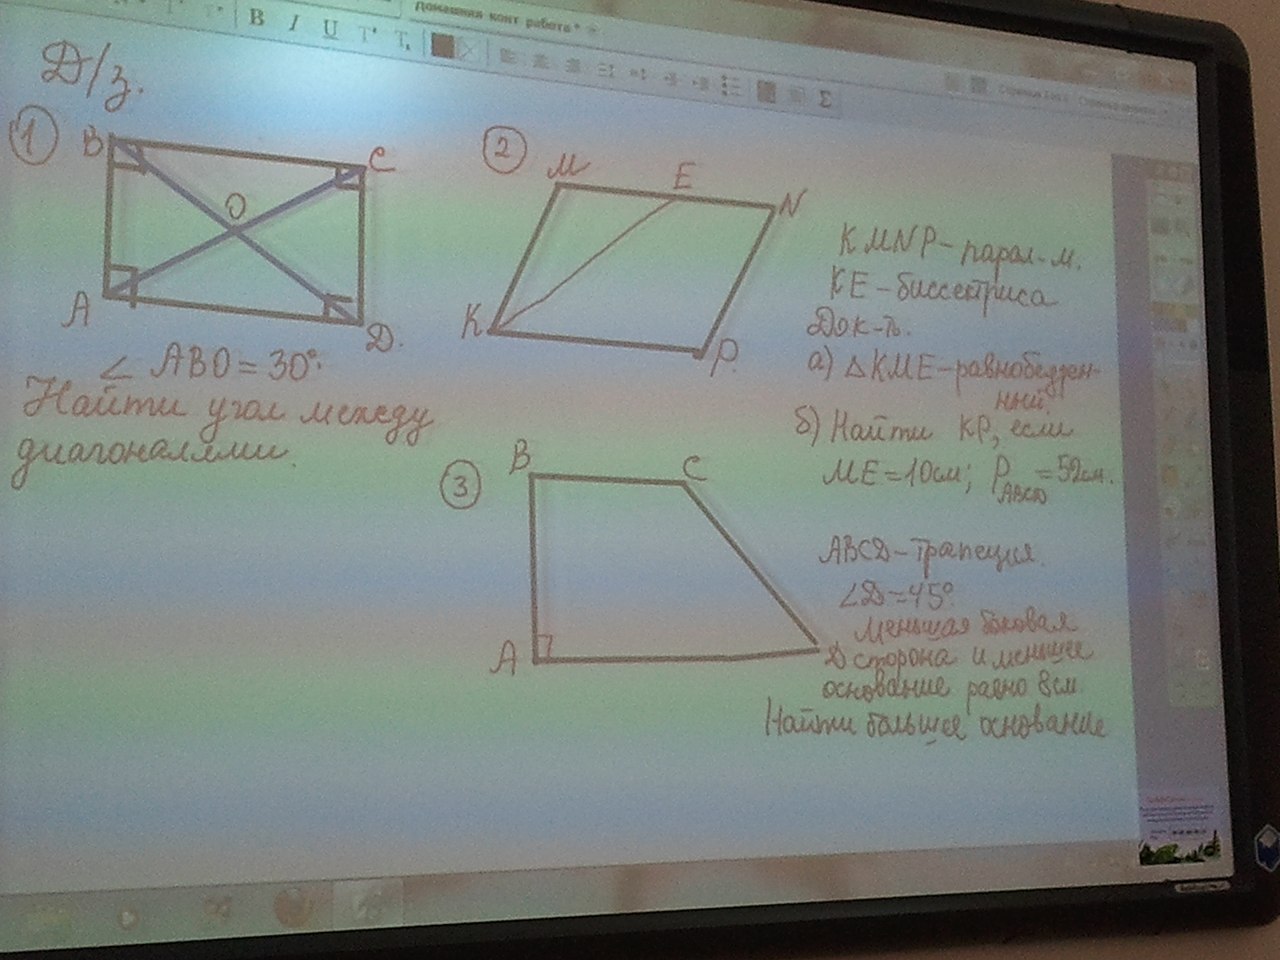 Домашняя конт работа*
B I U T T
Σ
Д/з.
1
B
C
O
A
D.
∠ ABO = 30°.
Найти угол между
диагоналями.
2
M
E
N
K
P.
KMNP – парал-м.
KE – биссектриса
Док-ть.
а) △KME – равнобедрен-
нный.
б) Найти KP, если
ME = 10см; P ABCD = 52см.
3
B
C
A
D
ABCD – трапеция.
∠D = 45°.
Меньшая боковая
сторона и меньшее
основание равно 8см
Найти большее основание